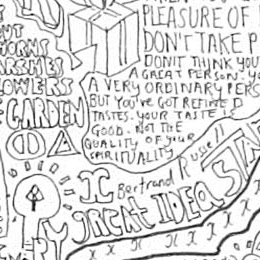 PLEASURE OF
DON'T TAKE P
DON'T THINK YOU
A GREAT PERSON. YO
A VERY ORDINARY PERS
BUT YOU'VE GOT REFINED
TASTES. YOUR TASTE IS
GOOD. NOT THE
QUALITY OF YOUR
SPIRITUALITY
OUT
THORNS
MARSHES
FLOWERS
GARDEN
Bertrand Russell
GREAT IDEA
STA